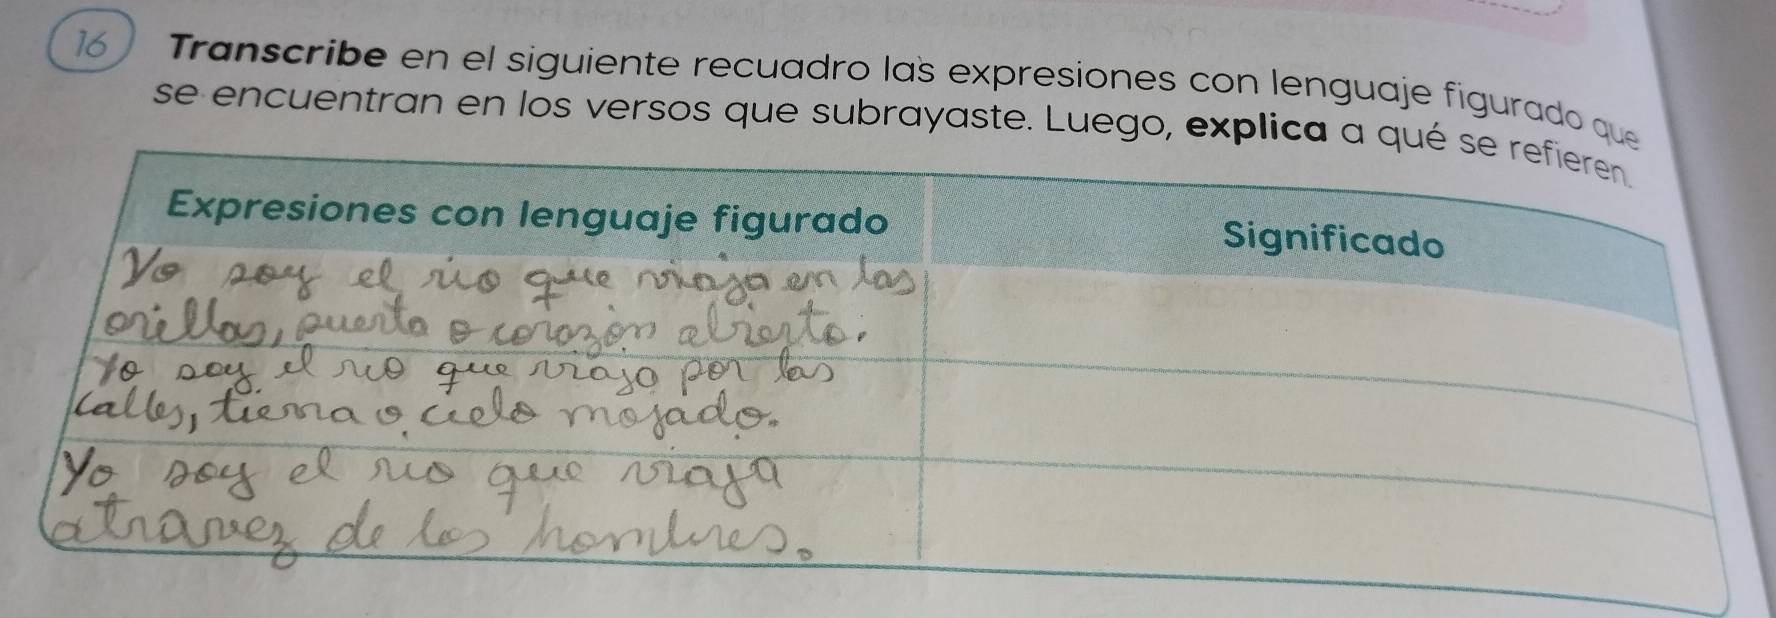 16 Transcribe en el siguiente recuadro las expresiones con lenguaje figurado que
se encuentran en los versos que subrayaste. Luego, explica a qué se refieren.
Expresiones con lenguaje figurado
Significado
Yo soy el rio que viaja en las
orillas, puerta o corazón abierto.
Yo soy el rio que viaja por las
calles, tierra o cielo mojado.
Yo soy el rio que viaja
atravez de los hombres.